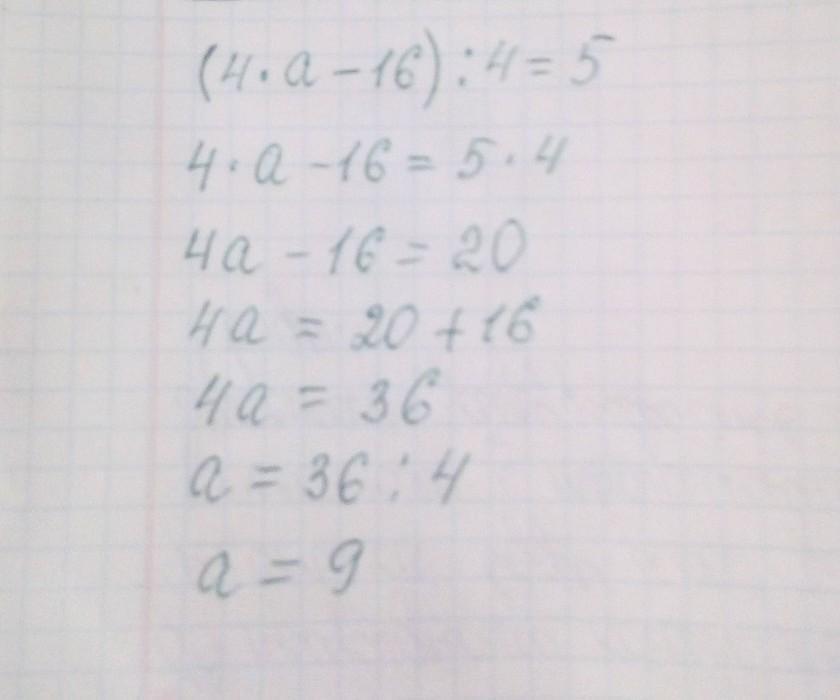 (4·a-16):4=5
4·a-16=5·4
4a-16=20
4a=20+16
4a=36
a=36:4
a=9